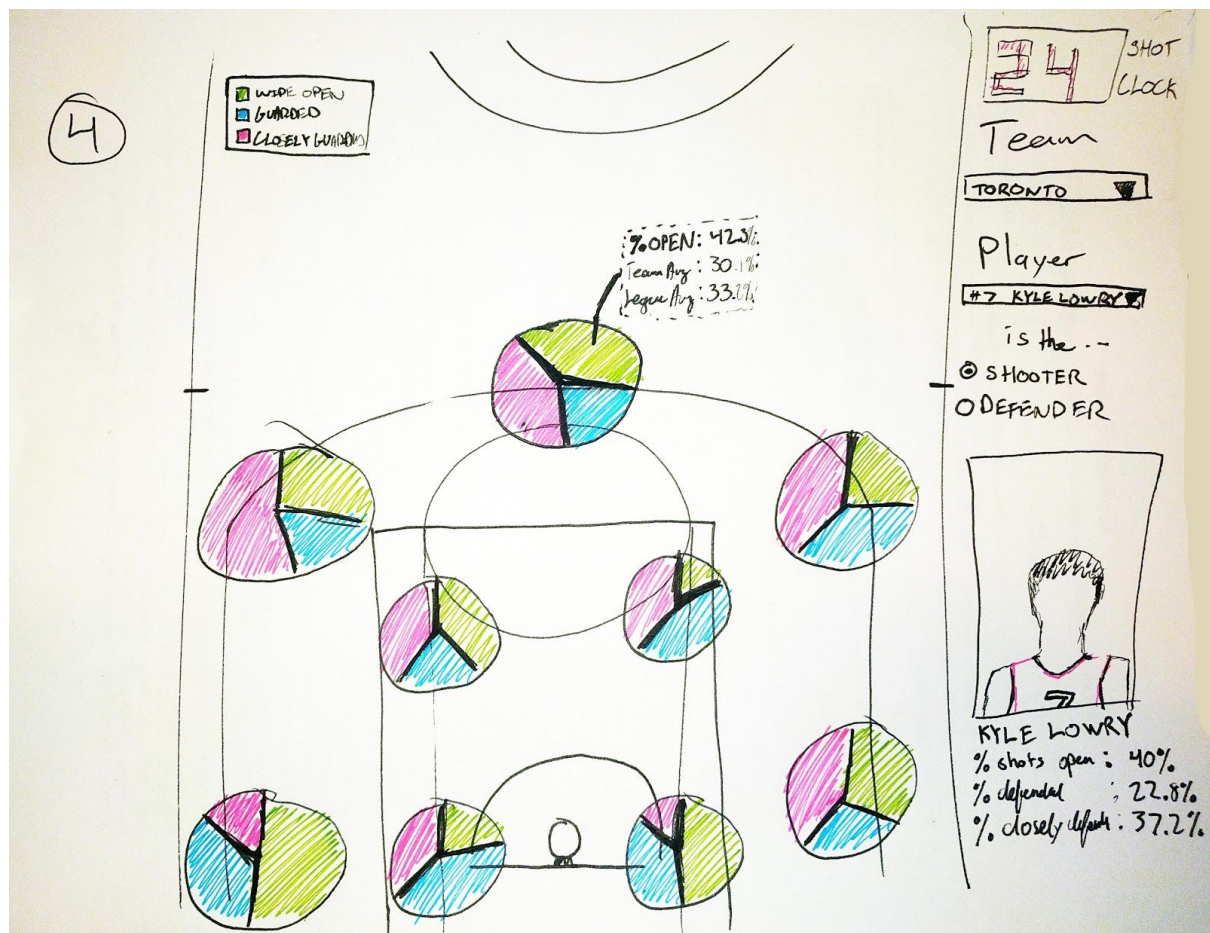 4
WIDE OPEN
GUARDED
CLOSELY GUARDED
% OPEN: 42.3%
Team Avg: 30.1%
League Avg: 33.2%
24 SHOT
CLOCK
Team
TORONTO
Player
#7 KYLE LOWRY
is the...
SHOOTER
DEFENDER
7
KYLE LOWRY
% shots open: 40%
% defended: 22.8%
% closely defended: 37.2%